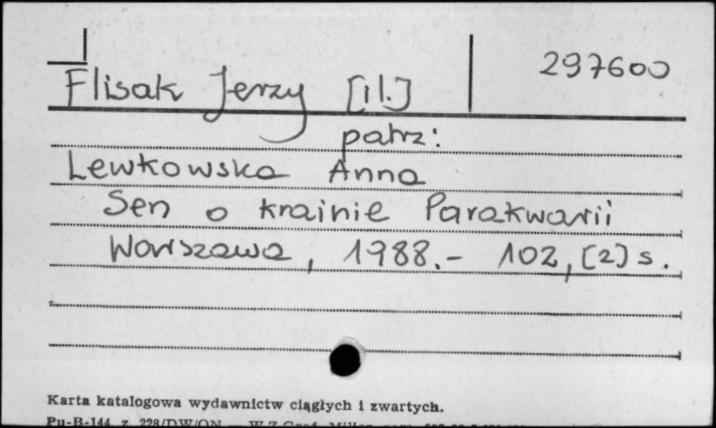 Flisak Jerzy [il.] 297600
patrz:
Lewkowska Anna
Sen o krainie Parakwarii
Warszawa, 1988.- 102, [2] s.
Karta katalogowa wydawnictw ciągłych i zwartych.
Pu-B-144, z. 228/DW/ON